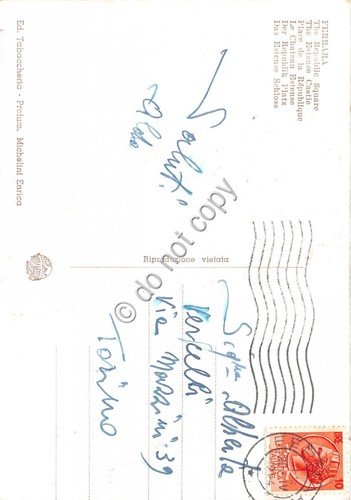 FERRARA
The Republic Square
The Estense Castle
Place de la République
Le Chateau Estense
Der Republik Platz
Das Estense Schloss
Saluti
Ed. Tabaccheria - Profum. Michelini Enrica
Riproduzione vietata
do not copy
Sig.na Alberta
Via Mazzini 39
Torino
10